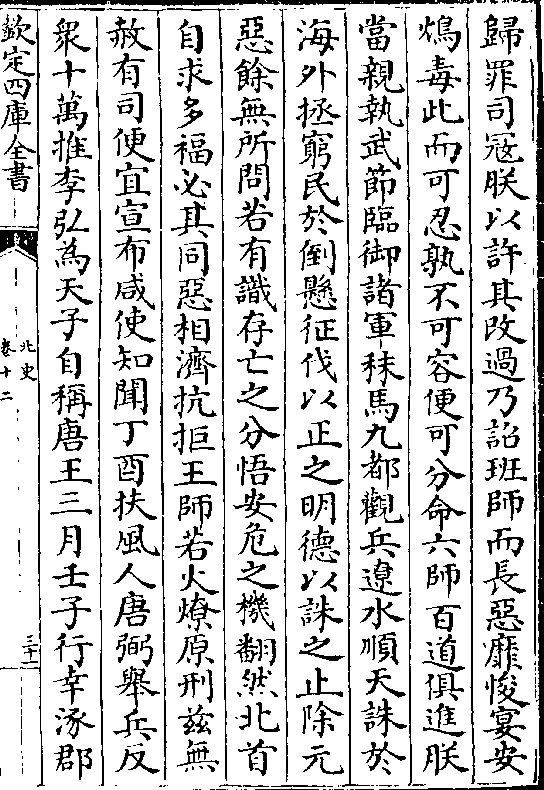 歸罪司冦朕以許其改過乃詔班師而長惡靡悛宴安
鴆毒此而可忍孰不可容便可分命六師百道俱進朕
當親執武節臨御諸軍秣馬九都觀兵遼水順天誅於
海外拯窮民於倒懸征伐以正之明德以誅之止除元
惡餘無所問若有識存亡之分悟安危之機翻然北首
自求多福必其同惡相濟抗拒王師若火燎原刑兹無
赦有司便宜宣布咸使知聞丁酉扶風人唐弼舉兵反
衆十萬推李弘為天子自稱唐王三月壬子行幸涿郡
欽定四庫全書
北史
卷十二
三十二